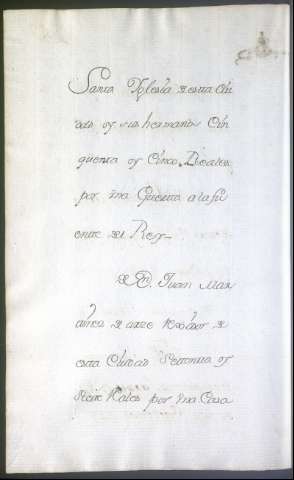 Santa Yglesia de esta Ciu
dad y sus hermanos Cin
quenta y Cinco Reales
por una Guerta a la fu
ente del Rey
D. Juan Mar
de
esta Ciudad Settenta y
Siete Reales por una Casa